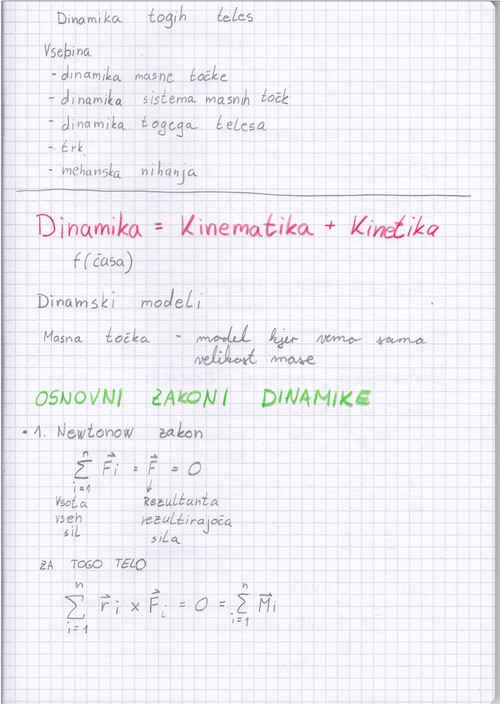 Dinamika togih teles
Vsebina
- dinamika masne točke
- dinamika sistema masnih točk
- dinamika togega telesa
- trk
- mehanska nihanja
Dinamika = Kinematika + Kinetika
f(časa)
Dinamski modeli
Masna točka - model kjer vemo samo
velikost mase
OSNOVNI ZAKONI DINAMIKE
• 1. Newtonow zakon
n
∑ F⃗i = F⃗ = 0
i=1 ↓
Vsota Rezultanta
vseh rezultirajoča
sil sila
ZA TOGO TELO
n n
∑ r⃗i × F⃗i = 0 = ∑ M⃗i
i=1 i=1